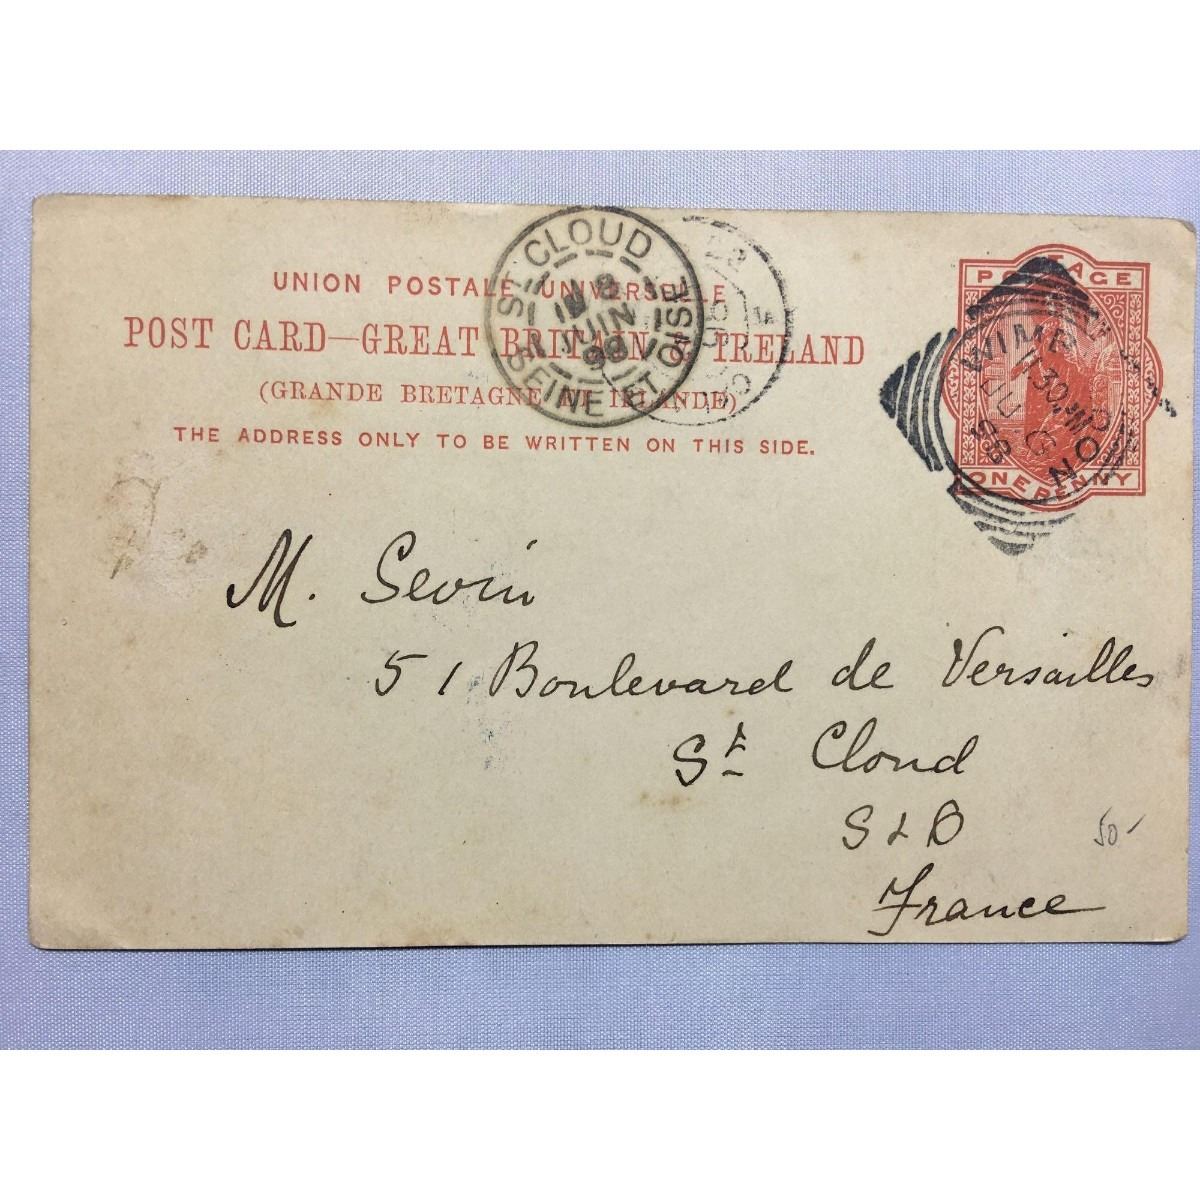 UNION POSTALE UNIVERSELLE
POST CARD—GREAT BRITAIN & IRELAND
(GRANDE BRETAGNE ET IRLANDE)
THE ADDRESS ONLY TO BE WRITTEN ON THIS SIDE.
ST CLOUD
8
JUIN
98
SEINE ET OISE
POSTAGE
ONE PENNY
WIMB
7.30 PM
98
M. Sevin
51 Boulevard de Versailles
St Cloud
S & O
France
50-